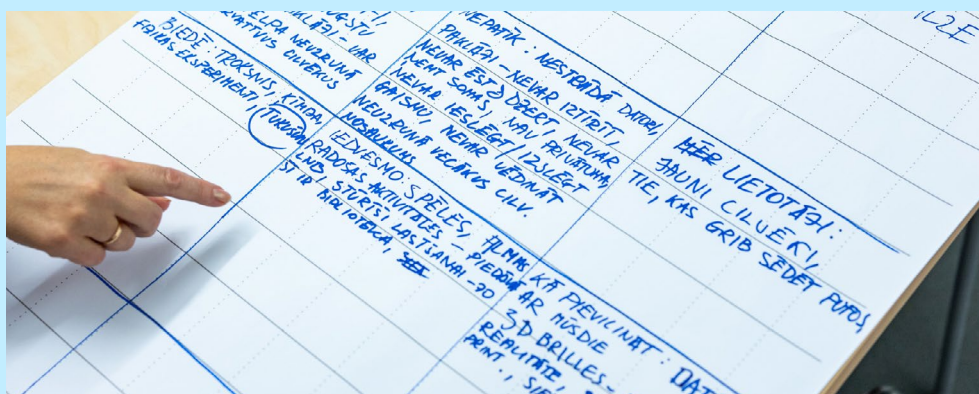 AUGSTU
NEUZRUNĀ
CILVĒKUS
BIEDĒ: TROKSNIS, ĶĪMIJA,
FIZIKAS EKSPERIMENTI,
NEPATĪK: NESTRĀDĀ DATORI,
PAKLĀJI – NEVAR IZTĪRĪT,
NEVAR ĒST & DZERT, NEVAR
ŅEMT SOMAS, NAV PRIVĀTUMA,
NEVAR IESLĒGT/IZSLĒGT
GAISMU, NEVAR VĒDINĀT
NEUZRUNĀ VECĀKUS CILV.
NOSAUKUMS
IEDVESMO: SPĒLES, FILMAS
RADOŠAS AKTIVITĀTES –
LNB, STŪRĪŠI LASĪŠANAI – JO
ŠĪ IR BIBLIOTĒKA,
LIETOTĀJI:
JAUNI CILVĒKI,
TIE, KAS GRIB SĒDĒT PUFOS,
KĀ PIEVILINĀT:
AR MŪSDIE
3D BRILLES –
REALITĀTE,
PRINT.,